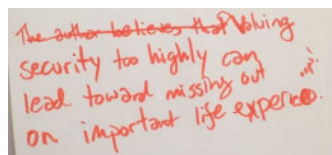 The author believes that Valuing
security too highly can
lead toward missing out
on important life experi